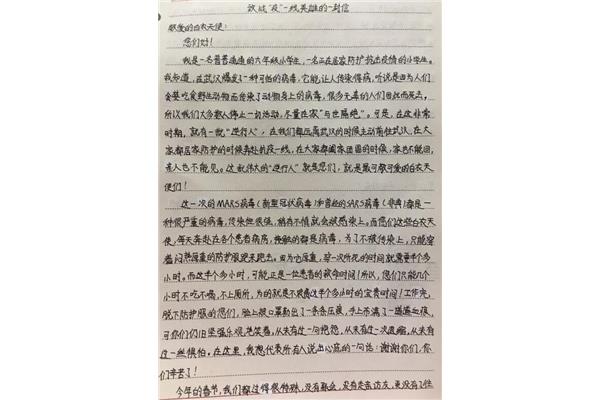 致战"疫"一线英雄的一封信
敬爱的白衣天使:
您们好!
我是一名普普通通的六年级小学生,一名正在居家防护抗击疫情的小学生。
我知道,在武汉爆发了一种可怕的病毒,它能让人传染得病,听说是因为人们
贪婪吃食野生动物而传染了动物身上的病毒,很多无辜的人们因此而死去,
所以我们大多数人停止一切活动,尽量在家"与世隔绝"。可是,在这非常
时期,就有一批"逆行人",在我们都远离武汉的时候主动前往武汉,在大
家都居家防护的时候奔赴抗疫一线,在大家都阖家团圆的时候,家也不能回,
亲人也不能见。这批伟大的"逆行人"就是您们,就是最可敬可爱的白衣天
使们!
这一次的MARS病毒(新型冠状病毒)和曾经的SARS病毒(非典)都是一
种很严重的病毒,传染性很强,稍有不慎就会被感染上。而您们这些白衣天
使,每天奔赴在各个患者病房,接触的都是病毒,为了不被传染上,只能穿
着闷热厚重的防护服跑来跑去。因为它厚重,穿一次所花的时间就需要半个多
小时。而这半个多小时,可能正是一位患者的救命时间!所以,您们只能几个
小时不吃不喝,不上厕所,为的就是不浪费这半个多小时的宝贵时间!工作完,
脱下防护服的您们,脸上被口罩勒出了一条条压痕,手上布满了一道道血痕,
可你们仍旧坚强乐观地笑着,从未有过一句抱怨,从未有过一次退缩,从未有
过一丝惧怕。在这里,我想代表所有人说出心底的一句话:谢谢你们,你
们辛苦了!
今年的春节,我们都过得很特殊,没有聚会,没有走亲访友,更没有了往